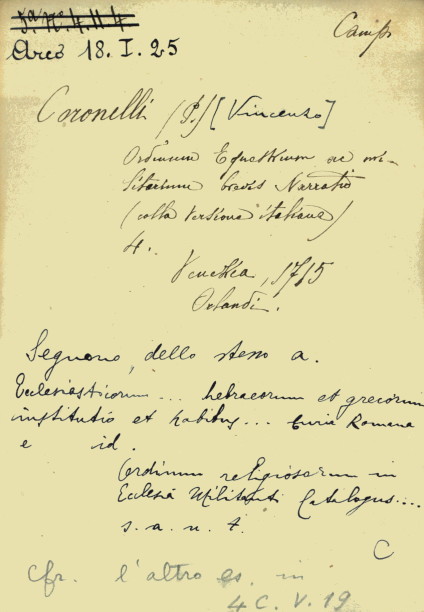 5ª N. 4. II 4
Arco 18. I. 25
Camp.
Coronelli (P.) [Vincenzo]
Ordinum Equestrium ac mi-
litarium brevis Narratio
(colla versione italiana)
4.
Venetia, 1715
Orlandi.
Seguono, dello stesso a.
Ecclesiasticorum ... hebraeorum et grecorum
institutio et habitus ... Curia Romana
e id.
Ordinum religiosorum in
Ecclesia Militanti Catalogus ....
s. a. n. t.
C
Cfr. l'altro es. in
4 C. V. 19